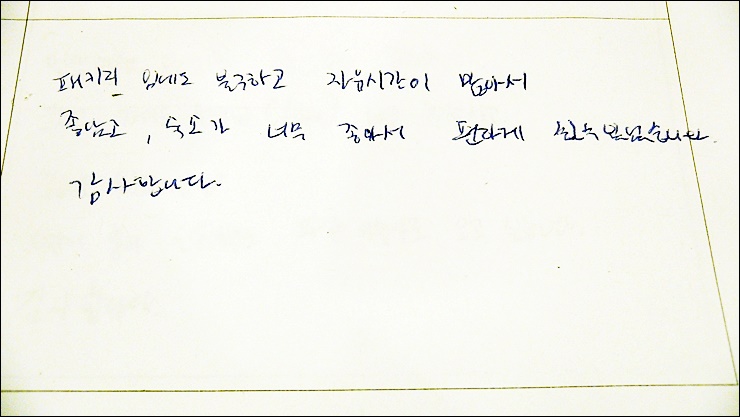 패키지 임에도 불구하고 자유시간이 많아서
좋았고, 숙소가 너무 좋아서 편하게 보냈습니다.
감사합니다.